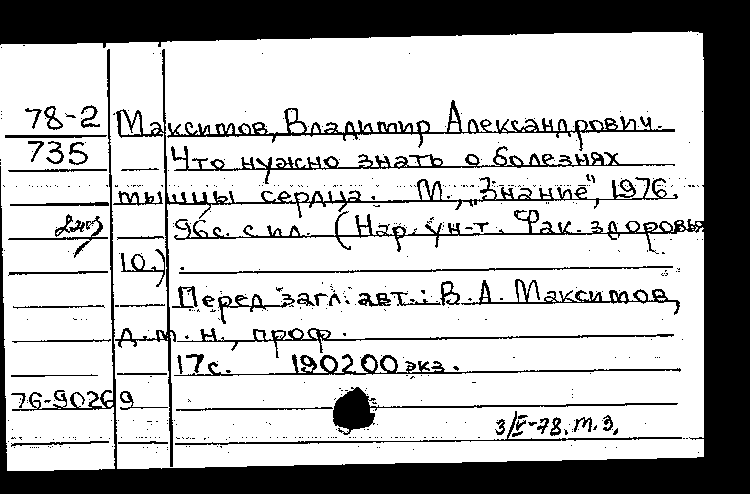 78-2 Максимов, Владимир Александрович.
735 Что нужно знать о болезнях
мышцы сердца. М., „Знание", 1976.
96с. с ил. (Нар. ун-т. Фак. здоровья
10.).
Перед загл. авт.: В. А. Максимов,
д. м. н., проф.
17с. 190200 экз.
76-90269
3/V-78. м. з.